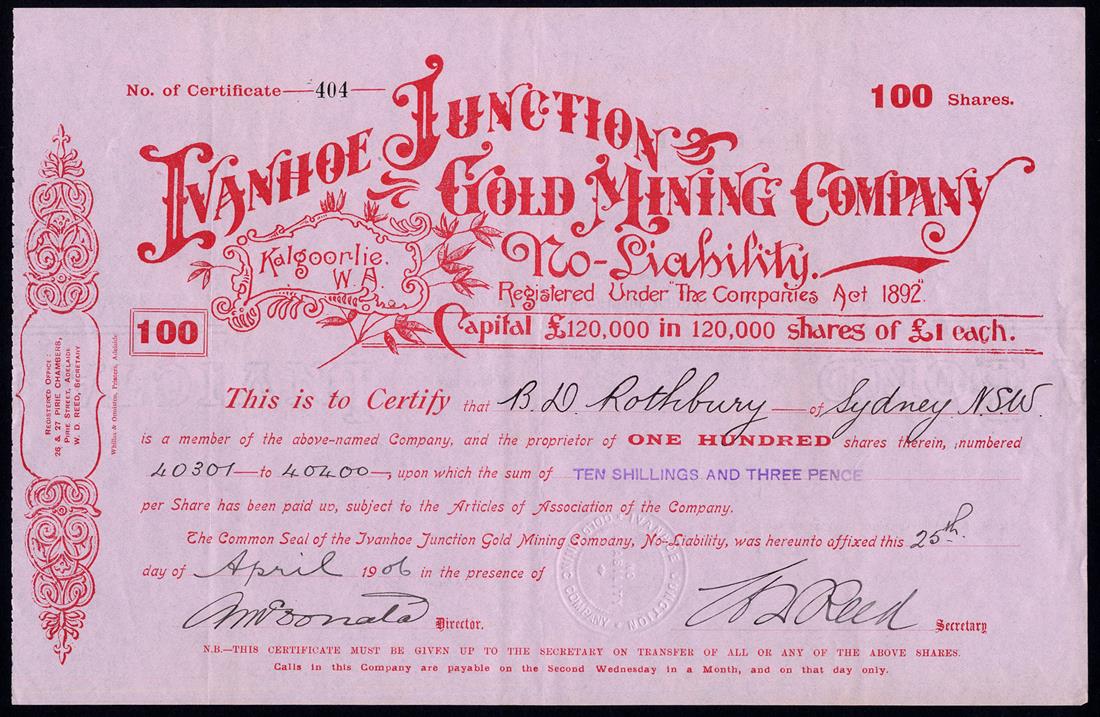 No. of Certificate — 404 —
100 Shares.
IVANHOE JUNCTION
GOLD MINING COMPANY
No-Liability.
Kalgoorlie.
W.A.
Registered Under "The Companies Act 1892".
100
Capital £120,000 in 120,000 shares of £1 each.
This is to Certify that B. D. Rothbury — of Sydney NSW.
is a member of the above-named Company, and the proprietor of ONE HUNDRED shares therein, numbered
40301 — to 40400 —, upon which the sum of TEN SHILLINGS AND THREE PENCE
per Share has been paid up, subject to the Articles of Association of the Company.
The Common Seal of the Ivanhoe Junction Gold Mining Company, No-Liability, was hereunto affixed this 25th.
day of April 1906 in the presence of
Director.
W D Reed Secretary
N.B.—THIS CERTIFICATE MUST BE GIVEN UP TO THE SECRETARY ON TRANSFER OF ALL OR ANY OF THE ABOVE SHARES.
Calls in this Company are payable on the Second Wednesday in a Month, and on that day only.
REGISTERED OFFICE:
26 & 27 PIRIE CHAMBERS,
PIRIE STREET, ADELAIDE
W. D. REED, SECRETARY
Whillas & Ormiston, Printers, Adelaide
IVANHOE JUNCTION GOLD MINING COMPANY
NO LIABILITY